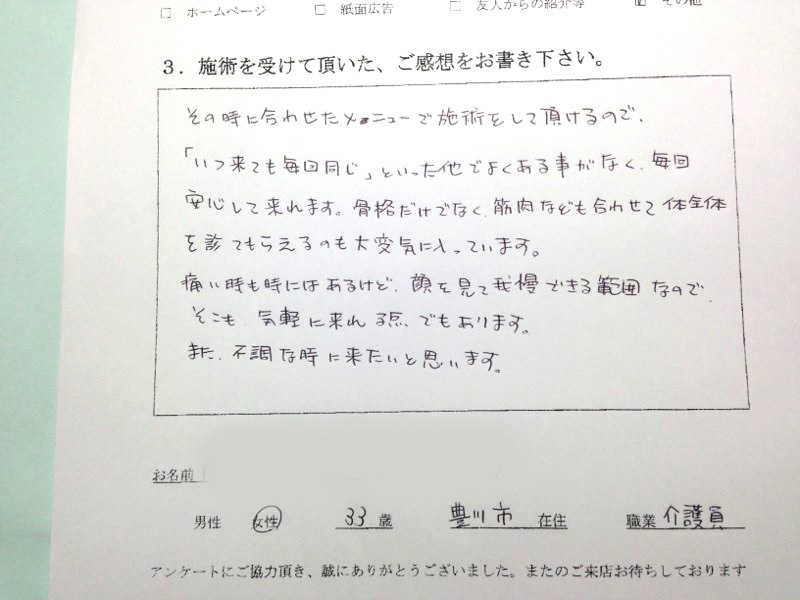 □ ホームページ □ 紙面広告 □ 友人からの紹介等 その他
3．施術を受けて頂いた、ご感想をお書き下さい。
その時に合わせたメニューで施術をして頂けるので、
「いつ来ても毎回同じ」といった他でよくある事がなく、毎回
安心して来れます。骨格だけでなく、筋肉なども合わせて体全体
を診てもらえるのも大変気に入っています。
痛い時も時にはあるけど、顔を見て我慢できる範囲なので、
そこも、気軽に来れる点、でもあります。
また、不調な時に来たいと思います。
お名前
男性 女性 33 歳 豊川市 在住 職業 介護員
アンケートにご協力頂き、誠にありがとうございました。またのご来店お待ちしております